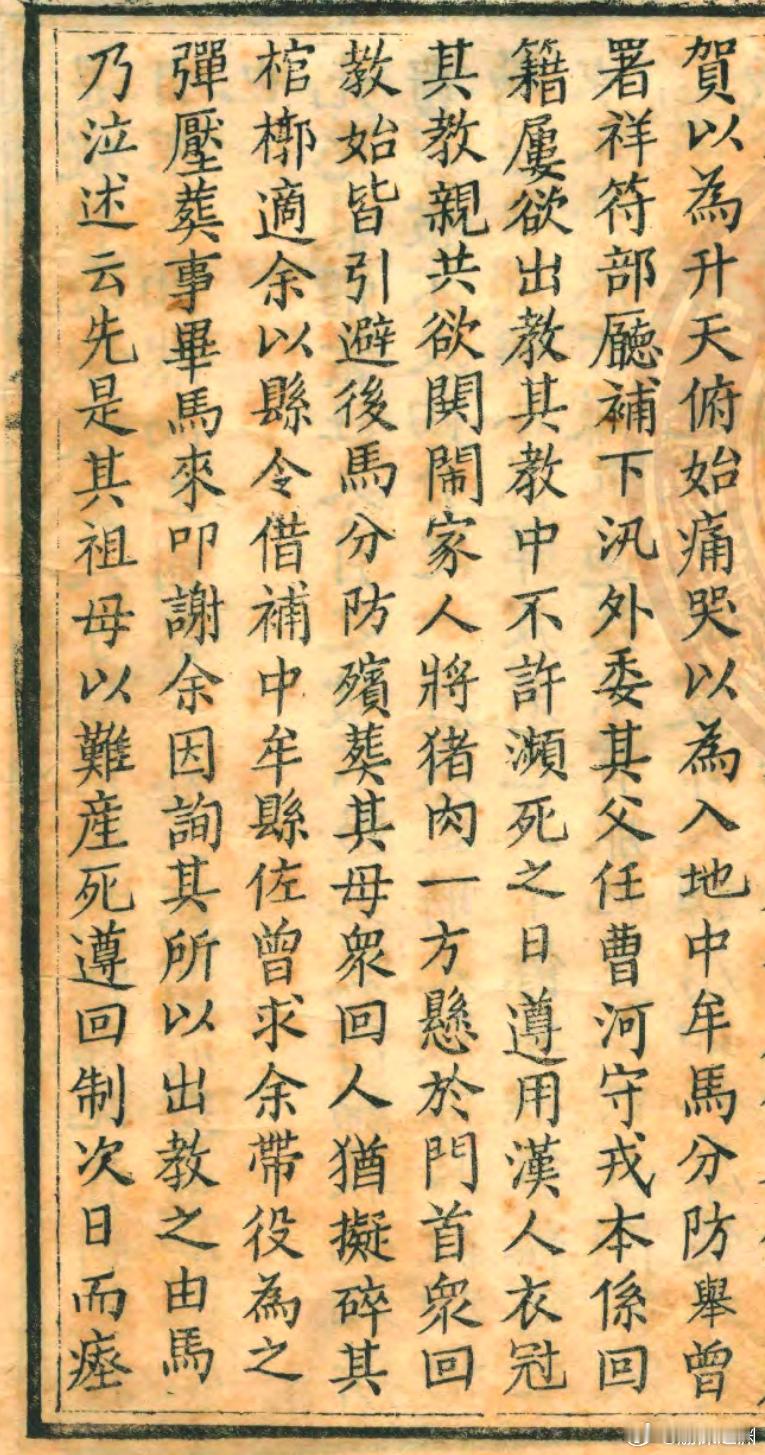 賀以為升天俯始痛哭以為入地中牟馬分防舉曾
署祥符部廳補下汛外委其父任曹河守戎本係回
籍屢欲出教其教中不許瀕死之日遵用漢人衣冠
其教親共欲閧鬧家人將猪肉一方懸於門首衆回
教始皆引避後馬分防殯葬其母衆回人猶擬碎其
棺槨適余以縣令借補中牟縣佐曾求余帶役為之
彈壓葬事畢馬來叩謝余因詢其所以出教之由馬
乃泣述云先是其祖母以難産死遵回制次日而瘞